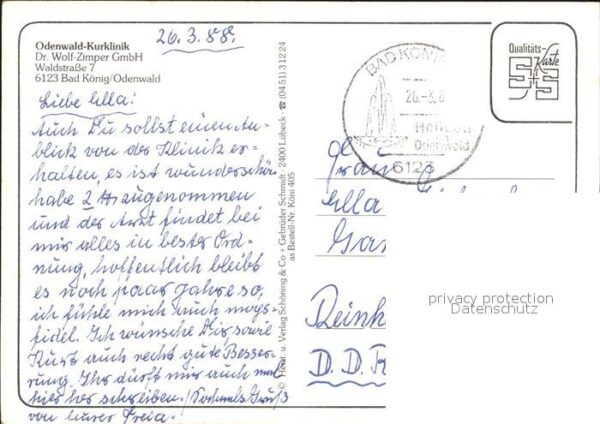 26.3.88.
Odenwald-Kurklinik
Dr. Wolf-Zimper GmbH
Waldstraße 7
6123 Bad König/Odenwald
Liebe Ella!
Auch Du sollst einen An-
blick von der Klinik er-
halten, es ist wunderschön
habe 2 zugenommen
und der Arzt findet bei
mir alles in bester Ord-
nung, hoffentlich bleibt
es noch paar Jahre so,
ich fühle mich auch mops-
fidel. Ich wünsche Dir sowie
Kurt auch recht gute Besser-
rung. Ihr dürft mir auch mal
hier her schreiben! Gruß
von Eurer
Verlag Schöning & Co + Gebrüder Schmidt · 2400 Lübeck · ☎ (04 51) 3 12 24
as Bestell-Nr. Köni 405
BAD KÖNIG
26.-3.8
Heilbad
Odenwald
6123
Qualitäts-
Karte
S+S
Frau
Ella
Reinh
D.D.R
privacy protection
Datenschutz